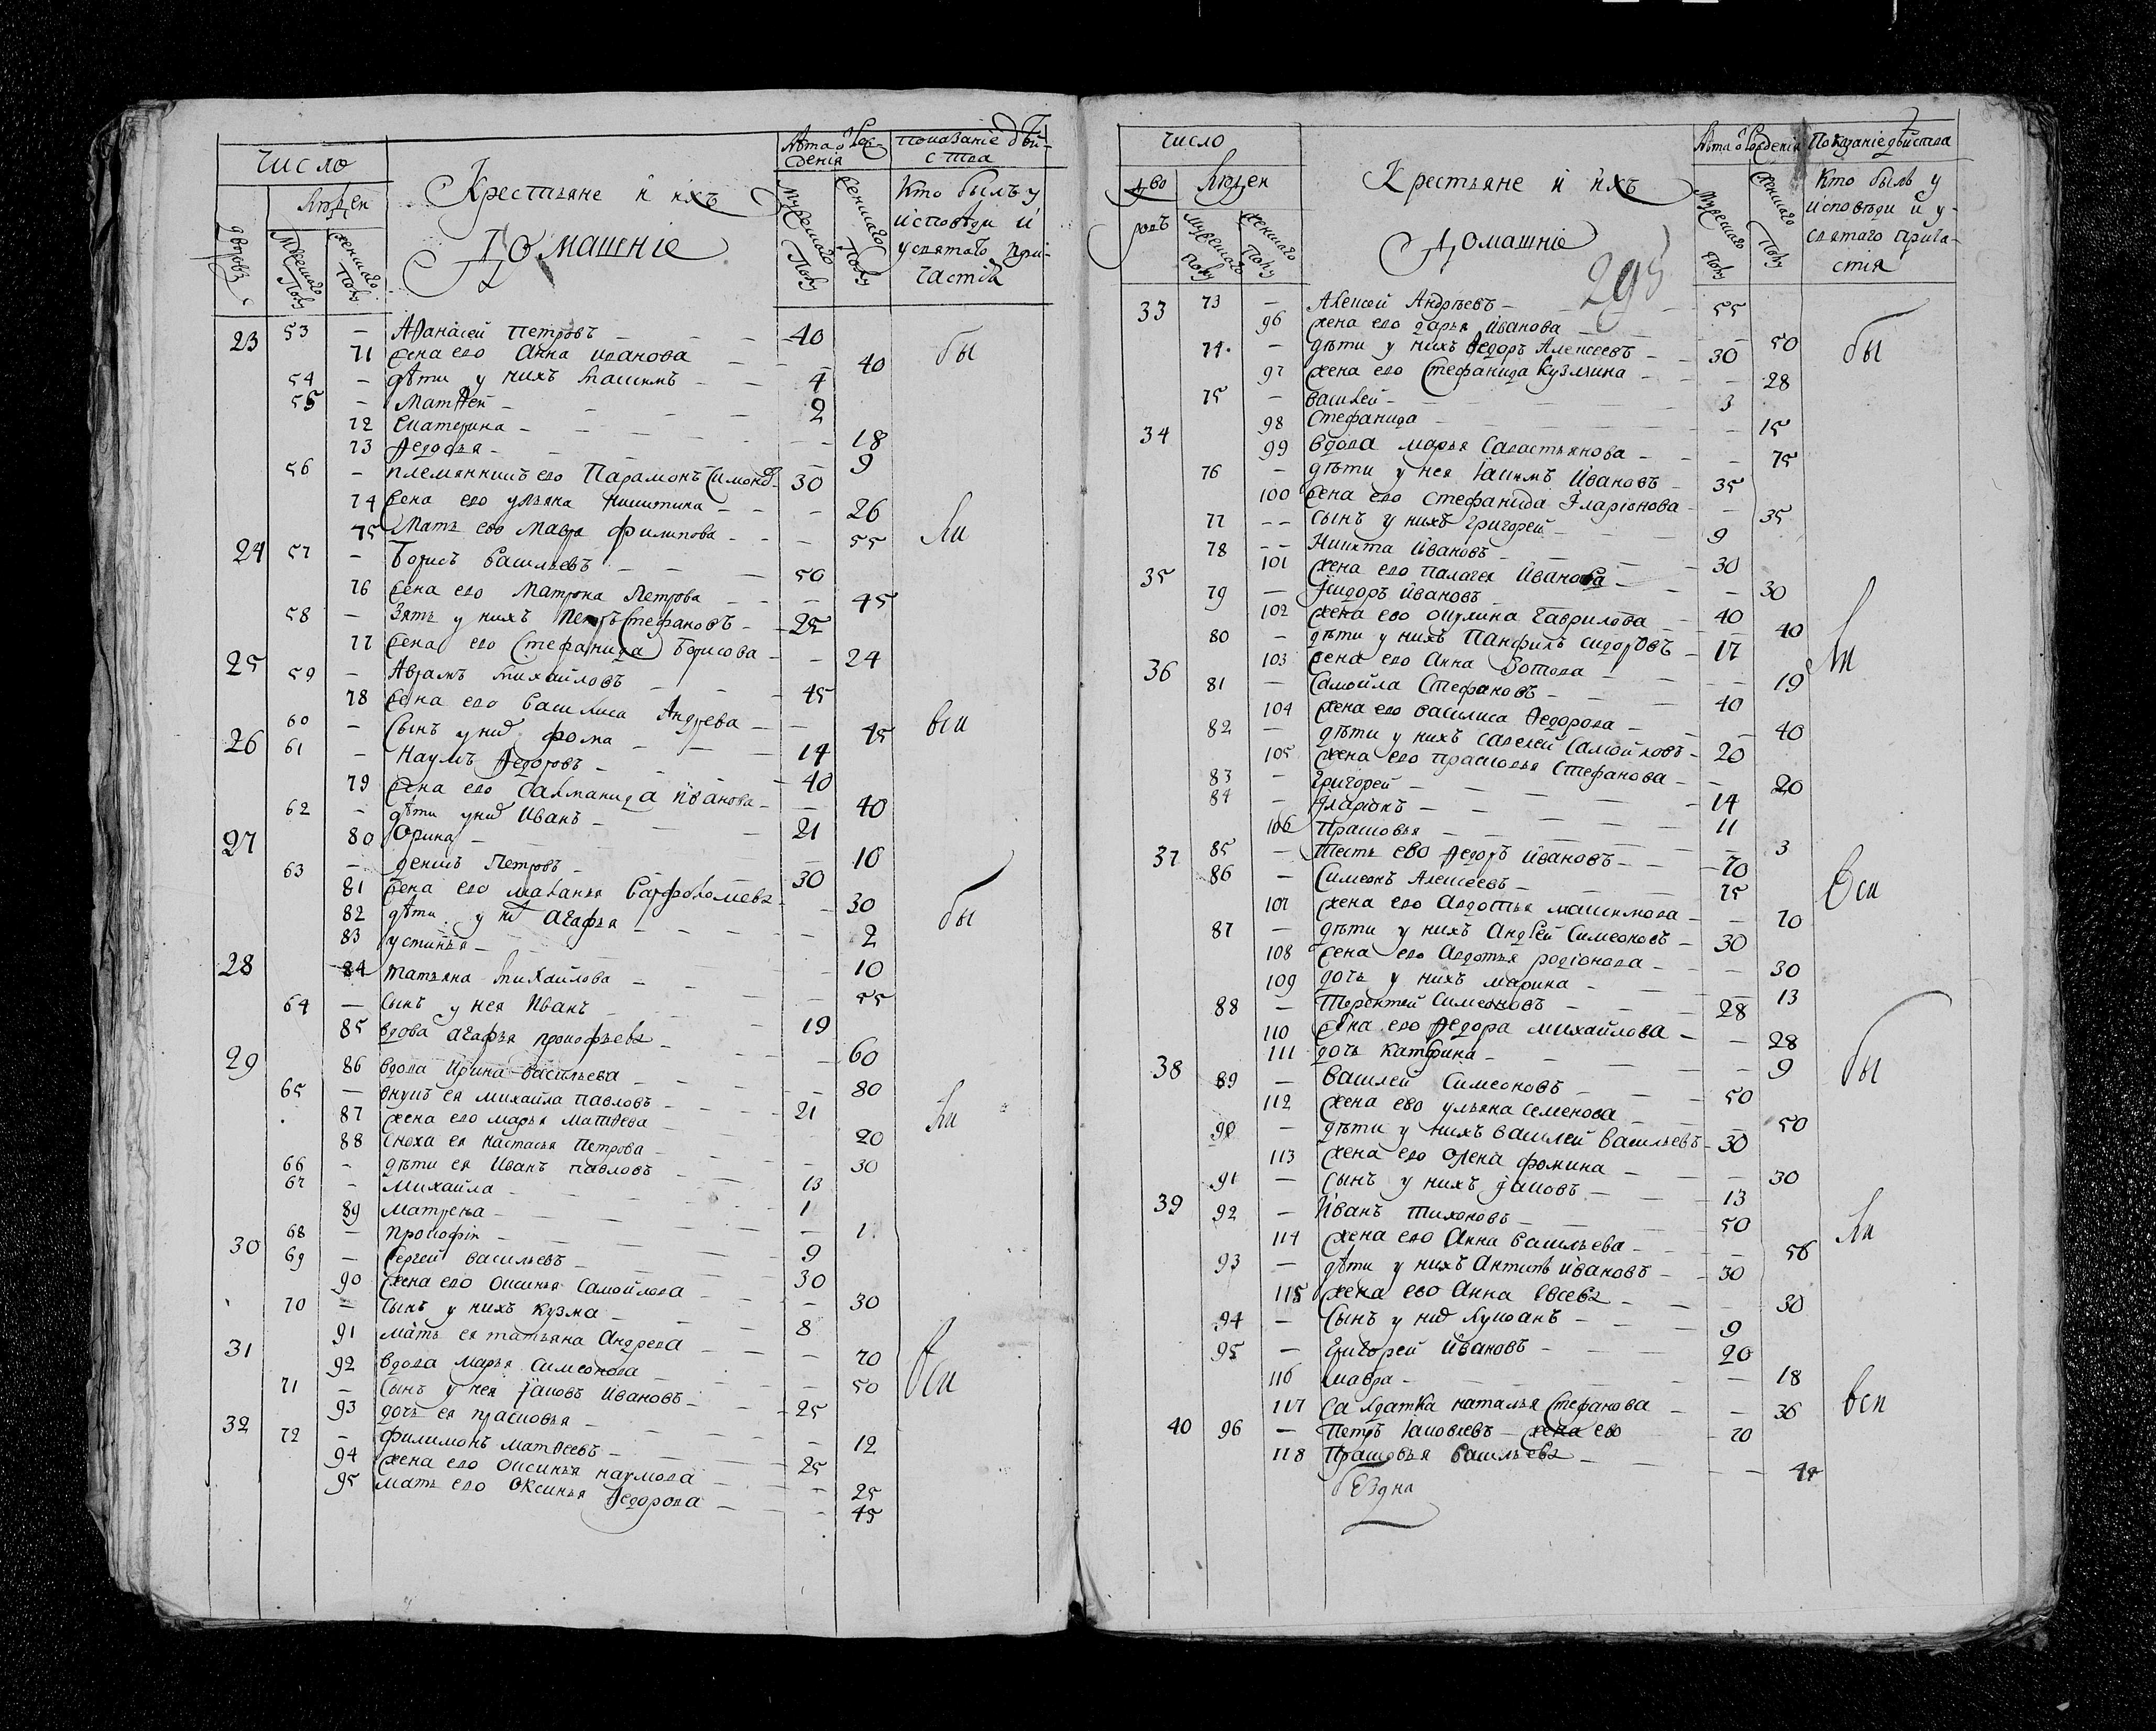 Число
Людей
дворовъ
мужеска полу
женскаго полу
Крестьяне и ихъ
Домашніе
Лѣта о Рождения
мужескаго полу
женскаго полу
показание дѣйства
Кто былъ у
исповѣди и
у святаго при-
частія
23 53 — Афанасей Петровъ 40 бы
71 жена ево Анна Иванова 40
54 — дѣти у нихъ Максимъ 4
55 — Матѳей 2
72 Екатерина 18
73 Ѳедосья 9
56 — племянникъ ево Парамонъ Симоновъ 30
74 жена ево ульяна Никитина 26
75 Мать ево Мавра филипова 55 ли
24 57 — Борисъ Васильевъ 50
76 жена ево Матрона Петрова 45
58 — Зять у нихъ Петръ Стефановъ 25
77 жена ево Стефанида Борисова 24
25 59 — Аврамъ Михаиловъ 45
78 жена ево Василиса Андрева 45 вси
60 — Сынъ у них фома 14
26 61 — Наумъ Ѳедоровъ 40
79 жена ево Саломанида Иванова 40
62 — дѣти у них Иванъ 21
80 Орина 10
27 63 — денисъ Петровъ 30
81 жена ево маланья Варфоломева 30
82 дѣти у них агафья 2 бы
83 устинья 10
28 84 татьяна михайлова 55
64 — Сынъ у нея Иванъ 19
85 вдова агафья прокофьева 60
29 86 вдова Ирина Васильева 80
65 — внукъ ея михайла павловъ 21
87 жена ево марья матѳева 20 ли
88 Сноха ея настасья Петрова 30
66 — дѣти ея Иванъ павловъ 13
67 — михайла 1
89 матрена 1
68 — прокофiи 9
30 69 — Сергей васильевъ 30
90 жена ево оксинья Самойлова 30
70 — Сынъ у нихъ кузма 8
91 мать ея татьяна Андрева 70
31 92 вдова марья симеонова 50 вси
71 — Сынъ у нея Яковъ Ивановъ 25
93 дочь ея прасковья 12
32 72 — филимонъ матѳеевъ 25
94 жена ево оксинья наумова 25
95 мать ево оксинья Ѳедорова 45
число
дво
ровъ
Людей
мужескаго полу
женскаго полу
Крестьяне и ихъ
Домашніе
295
Лѣта о Рождения
мужескаго полу
женскаго полу
Показание дѣйства
Кто былъ у
исповѣди и у-
святаго прича-
стия
33 73 — Алексей Андрѣевъ 55
96 жена ево дарья Иванова 50 бы
74 — дѣти у нихъ Ѳедоръ Алексеевъ 30
97 жена ево Стефанида Кузмина 28
75 — василей 3
98 Стефанида 15
34 99 вдова марья Савастьянова 75
76 — дѣти у нея Iакимъ Ивановъ 35
100 жена ево Стефанида Iларiонова 35
77 — сынъ у нихъ григорей 9
78 — Никита Ивановъ 30
101 жена ево палагея Иванова 30
35 79 — Сидоръ Ивановъ 40
102 жена ево окулина Гаврилова 40 ли
80 — дѣти у нихъ Панфилъ сидоровъ 17
103 жена ево Анна Зотова 19
36 81 — Самойла Стефановъ 40
104 жена ево василиса Ѳедорова 40
82 — дѣти у нихъ савелей Самойловъ 20
105 жена ево прасковья Стефанова 20
83 — григорей 14
84 — Iларiонъ 11
106 прасковья 3
37 85 — тесть ево Ѳедоръ Ивановъ 70
86 — Симеонъ Алексеевъ 75 вси
107 жена ево Авдотья максимова 70
87 — дѣти у нихъ Андрей Симеоновъ 30
108 жена ево Авдотья родiонова 30
109 дочь у нихъ марина 13
88 — Терентей Симеоновъ 28
110 жена ево Ѳедора михайлова 28
111 дочь катерина 9
38 89 — Василей Симеоновъ 50 бы
112 жена ево ульяна семенова 50
90 — дѣти у нихъ василей васильевъ 30
113 жена ево олена фомина 30
91 — сынъ у нихъ Яковъ 13
39 92 — Иванъ тихоновъ 50
114 жена ево Анна васильева 56 ли
93 — дѣти у нихъ Антипъ ивановъ 30
115 жена ево Анна Евсева 30
94 — Сынъ у них лукоанъ 9
95 — григорей Ивановъ 20
116 мавра 18
117 салдатка наталья Стефанова 36 вси
40 96 — Петръ Iаковлевъ жена ево 70
118 Прасковья Васильева 48